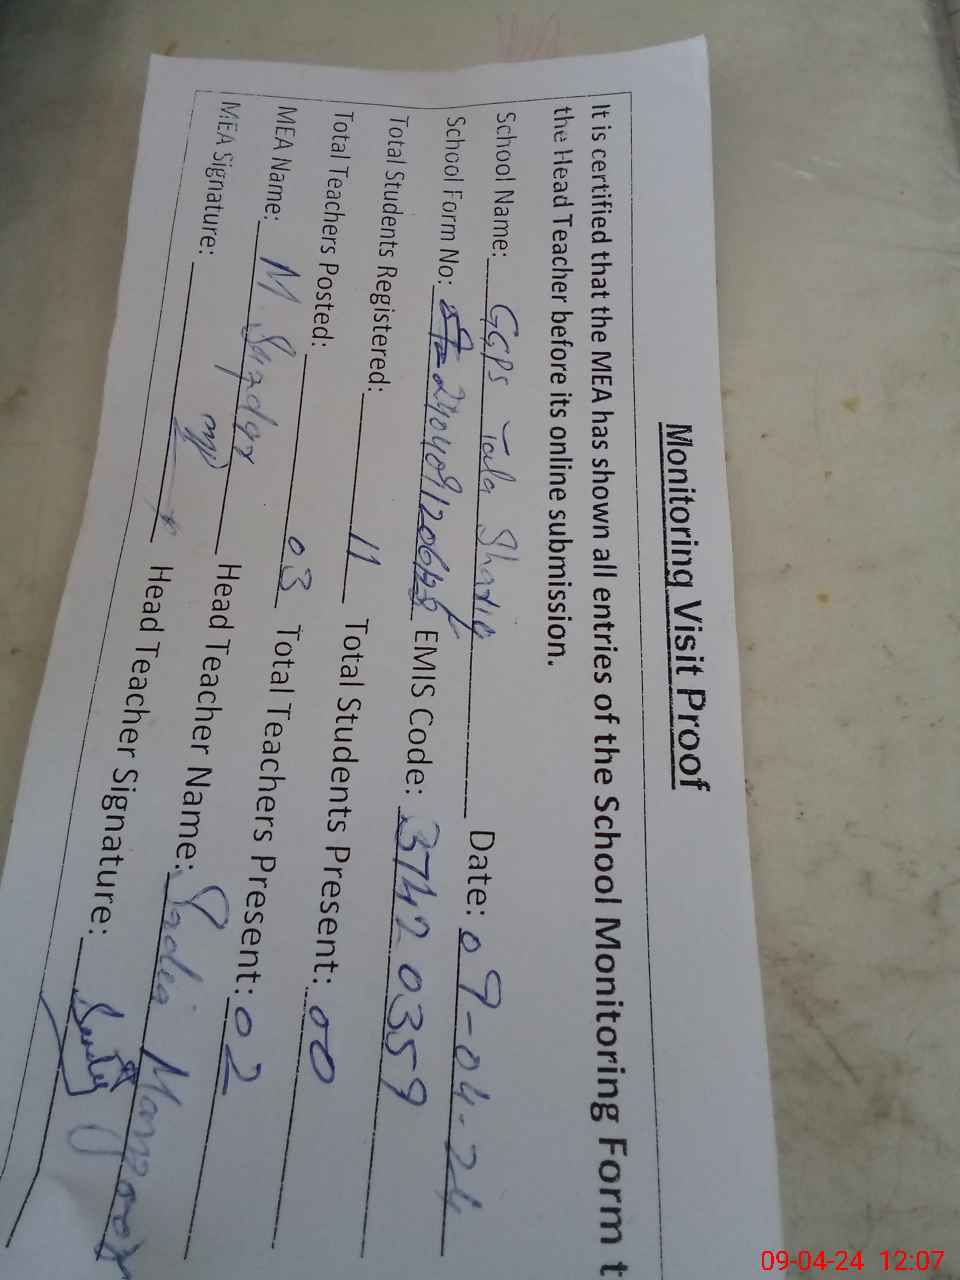 Monitoring Visit Proof
It is certified that the MEA has shown all entries of the School Monitoring Form t
the Head Teacher before its online submission.
School Name: GGPS Tala Shadia Date: 09-04-24
School Form No: EMIS Code: 37420359
Total Students Registered: 11 Total Students Present: 00
Total Teachers Posted: 03 Total Teachers Present: 02
MEA Name: M. Head Teacher Name: Sadia
MEA Signature: Head Teacher Signature:
09-04-24 12:07